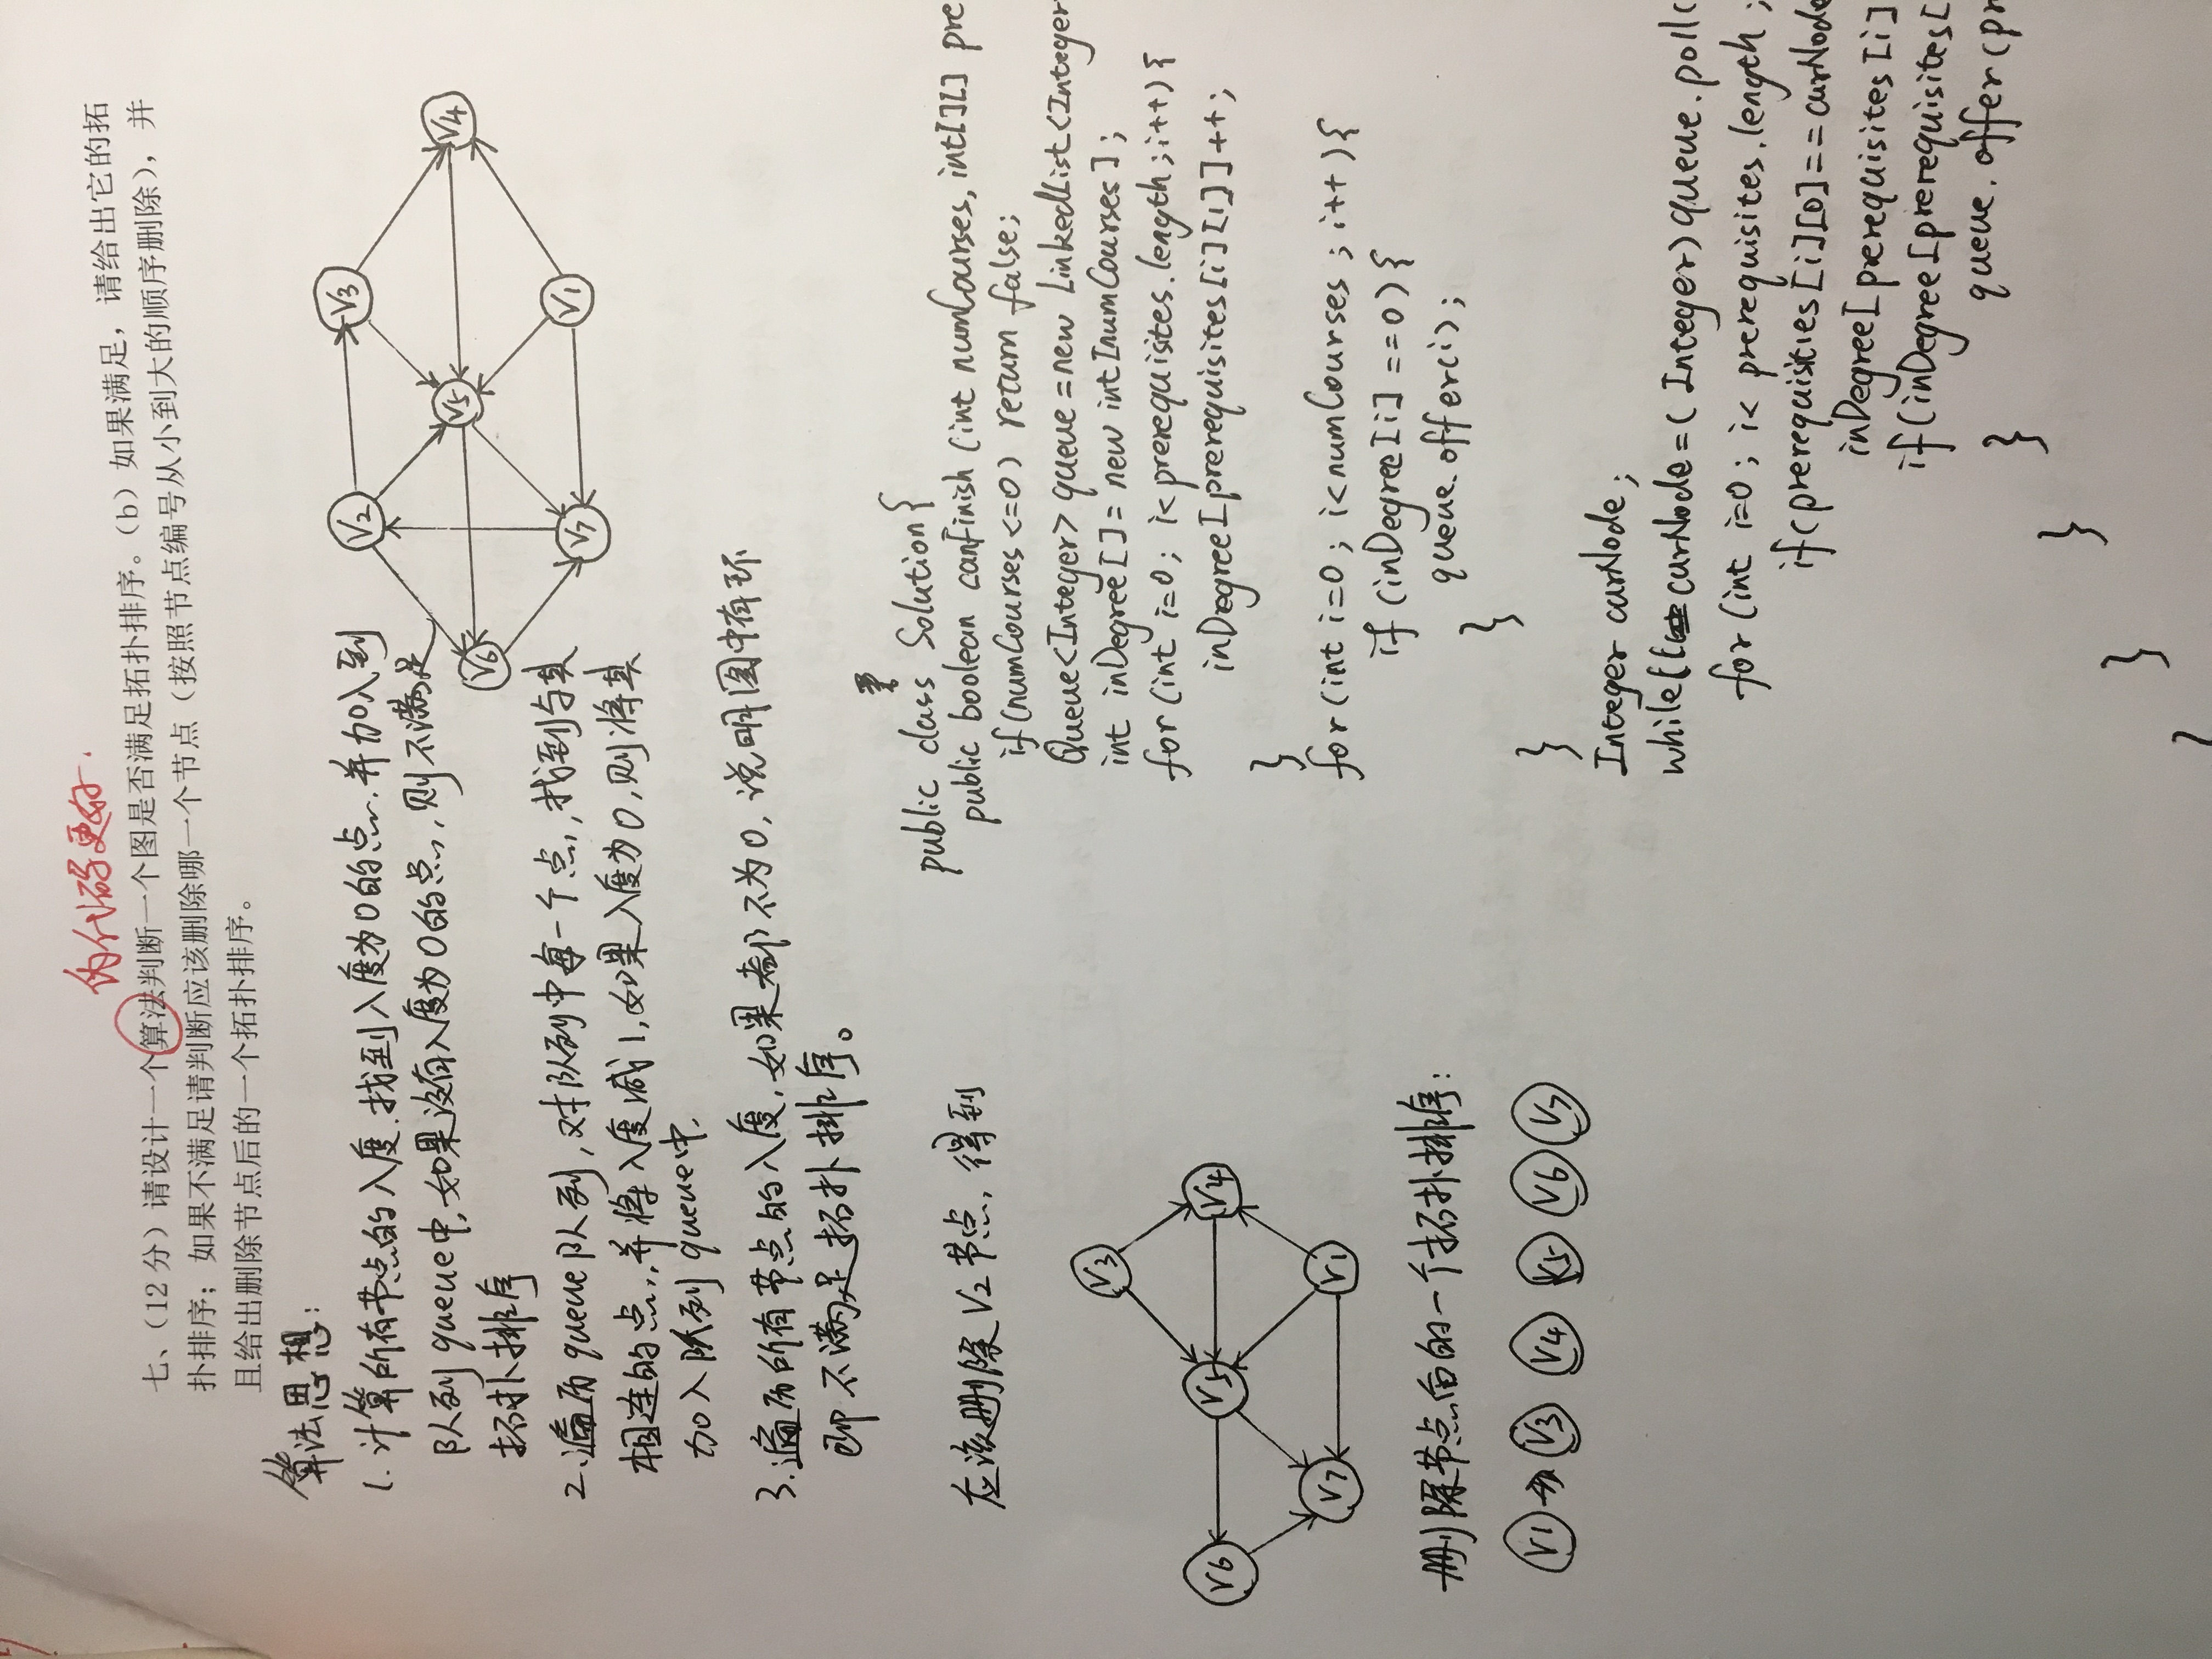 伪代码更好.
七、（12 分）请设计一个算法判断一个图是否满足拓扑排序。（b）如果满足，请给出它的拓
扑排序；如果不满足请判断应该删除哪一个节点（按照节点编号从小到大的顺序删除），并
且给出删除节点后的一个拓扑排序。
算法思想：
1. 计算所有节点的入度.找到入度为0的点.并加入到
队列 queue中,如果没有入度为0的点,则不满足
拓扑排序
2.遍历queue队列,对队列中每一个点,找到与其
相连的点,并将入度减1,如果入度为0,则将其
加入队列queue中,
3.遍历所有节点的入度,如果都不为0,说明图中有环
即不满足拓扑排序。
V2
V3
V6
V5
V4
V7
V1
应该删除V2节点,得到
V3
V6
V5
V4
V7
V1
删除节点后的一个拓扑排序:
V1 → V3 V4 V5 V6 V7
public class Solution{
public boolean canFinish (int numCourses, int[][] pre
if(numCourses <=0) return false;
Queue<Integer> queue = new LinkedList<Integer
int inDegree[] = new int[numCourses];
for (int i=0; i< prerequisites.length; i++){
inDegree[prerequisites[i][1]]++;
}
for(int i=0; i<numCourses; i++){
if (inDegree[i] ==0){
queue.offer(i);
}
}
Integer curNode;
while((curNode=(Integer)queue.poll(
for (int i=0; i< prerequisites.length;
if(prerequisities[i][0]==curNode
inDegree[prerequisites[i]
if(inDegree[prerequisites[
queue.offer(pr
}
}
}
}